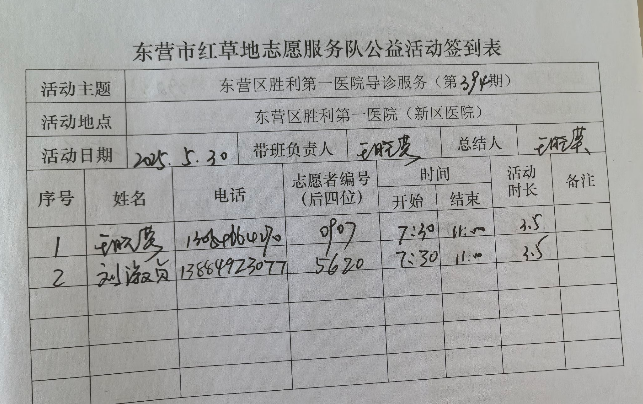 东营市红草地志愿服务队公益活动签到表
活动主题 东营区胜利第一医院导诊服务（第394期）
活动地点 东营区胜利第一医院（新区医院）
活动日期 2025.5.30 带班负责人 总结人
序号 姓名 电话 志愿者编号（后四位） 时间 开始 结束 活动时长 备注
1 0907 7:30 11:00 3.5
2 刘淑贞 13884923077 5620 7:30 11:00 3.5